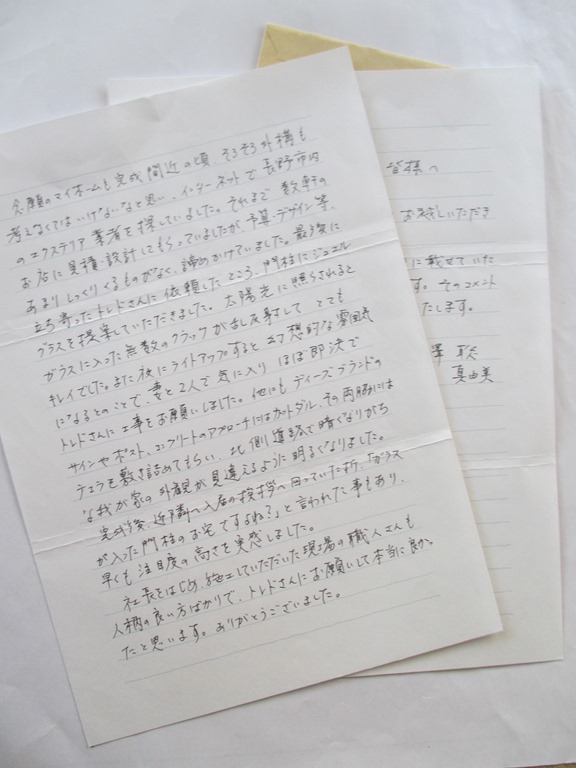 念願のマイホームも完成間近の頃、そろそろ外構も
考えなくてはいけないなと思い、インターネットで長野市内
のエクステリア業者を探していました。それまで数軒の
お店に見積・設計してもらっていましたが、予算・デザイン等、
あまりしっくりくるものがなく、諦めかけていました。最後に
立ち寄ったトレドさんに依頼したところ、門柱にジュエル
グラスを提案していただきました。太陽光に照らされると
ガラスに入った無数のクラックが乱反射して とても
キレイでした。また夜にライトアップすると幻想的な雰囲気
になるとのことで、妻と2人で気に入り ほぼ即決で
トレドさんに工事をお願いしました。他にもディーズブランドの
サインやポスト、コンクリートのアプローチにはカットダル、その両脇には
テラを敷き詰めてもらい、北側道路で暗くなりがち
な我が家の外観が見違えるように明るくなりました。
完成後、近隣へ入居の挨拶へ回っていた折、「ガラス
が入った門柱のお宅ですよね?」と言われた事もあり、
早くも注目度の高さを実感しました。
社長をはじめ、施工していただいた現場の職人さんも
人柄の良い方ばかりで、トレドさんにお願いして本当に良かっ
たと思います。ありがとうございました。
皆様へ
お越しいただき
に載せていた
す。そのコメント
たします。
澤
真由美